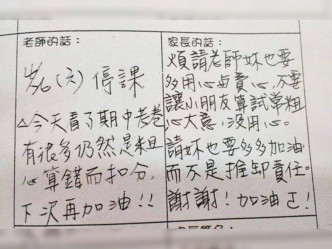 老師的話:
4/6(六)停課
△今天看了期中考卷
有很多仍然是粗
心算錯而扣分,
下次再加油!!
家長的話:
煩請老師妳也要
多用心與責心,不要
讓小朋友算試常粗
心大意,沒用心。
請妹也要多多加油
而不是推卸責任。
謝謝!加油正!